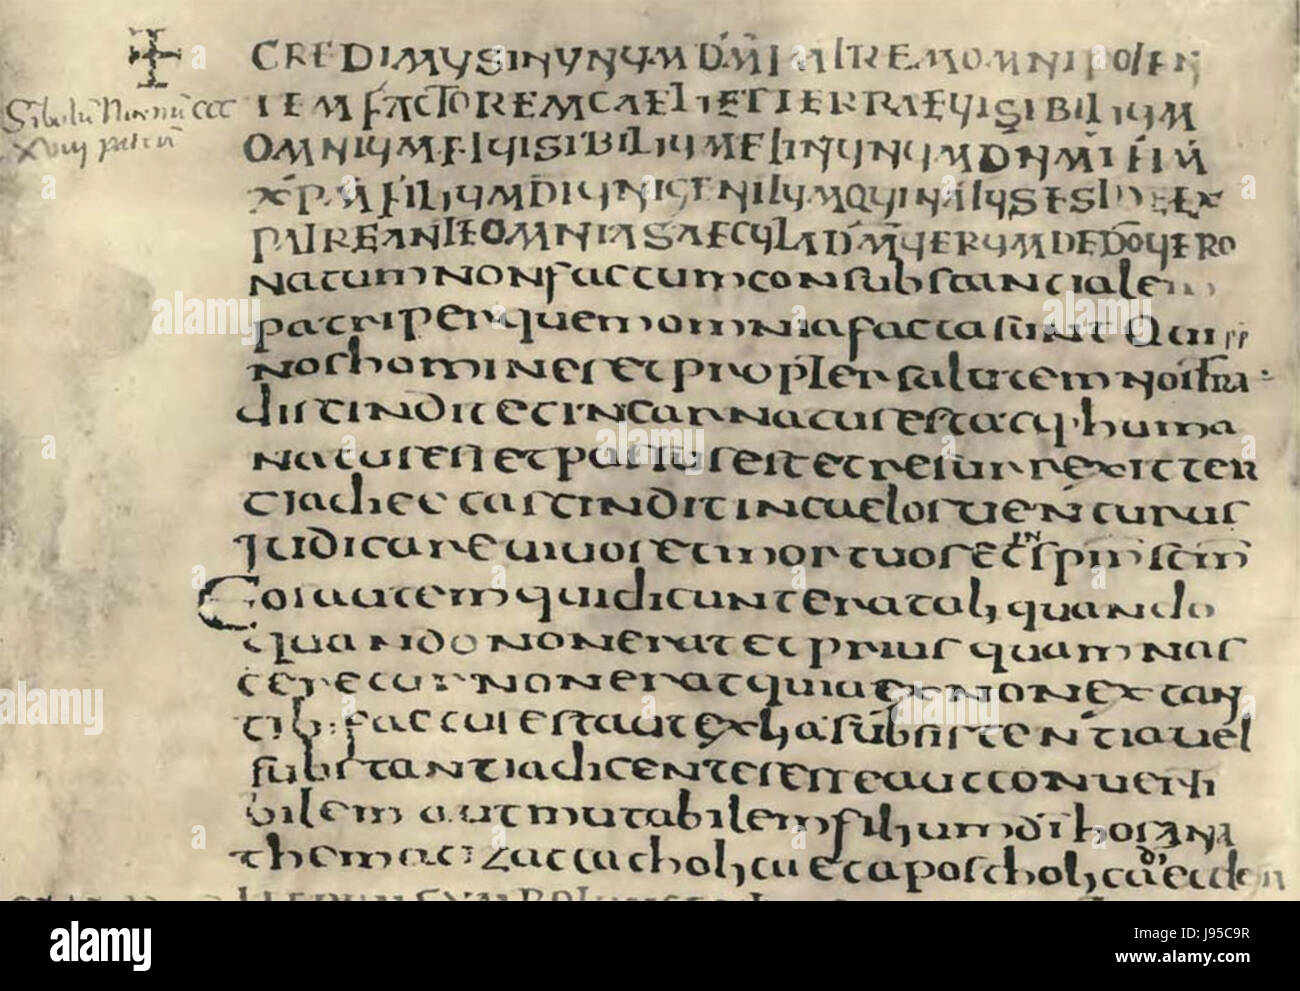 Sibolu Nicenu CCC
XVIII patru
CREDIMUS IN UNUM DM PATREM OMNIPOTEN
TEM FACTOREM CAELI ET TERRAE UISIBILIUM
OMNIUM ET UISIBILIUM ET IN UNUM DNM IHM
XPM FILIUM DI UNIGENITUM QUI NATUS EST DE EX
PATRE ANTE OMNIA SAECULA DM UERUM DE DO UERO
natum non factum consubstantialem
patri per quem omnia facta sunt Qui pp
nos homines et propter salutem nostra
discindit et incarnatus est acq. huma
natus est et passus est et resurrexit ter
tia die et ascindit in caelos uenturus
judicare uiuos et mortuos et in spm scm
Eos autem qui dicunt erat aliquando
quando non erat et prius quam nas
ceretur non erat quia ex non extan
tib: factus est aut ex ha subsistentia uel
substantia dicentes esse aut conuerti
bilem aut mutabilem filium di hos ana
themat izat catholica et apostholica di
alamy
J95C9R
www.alamy.com